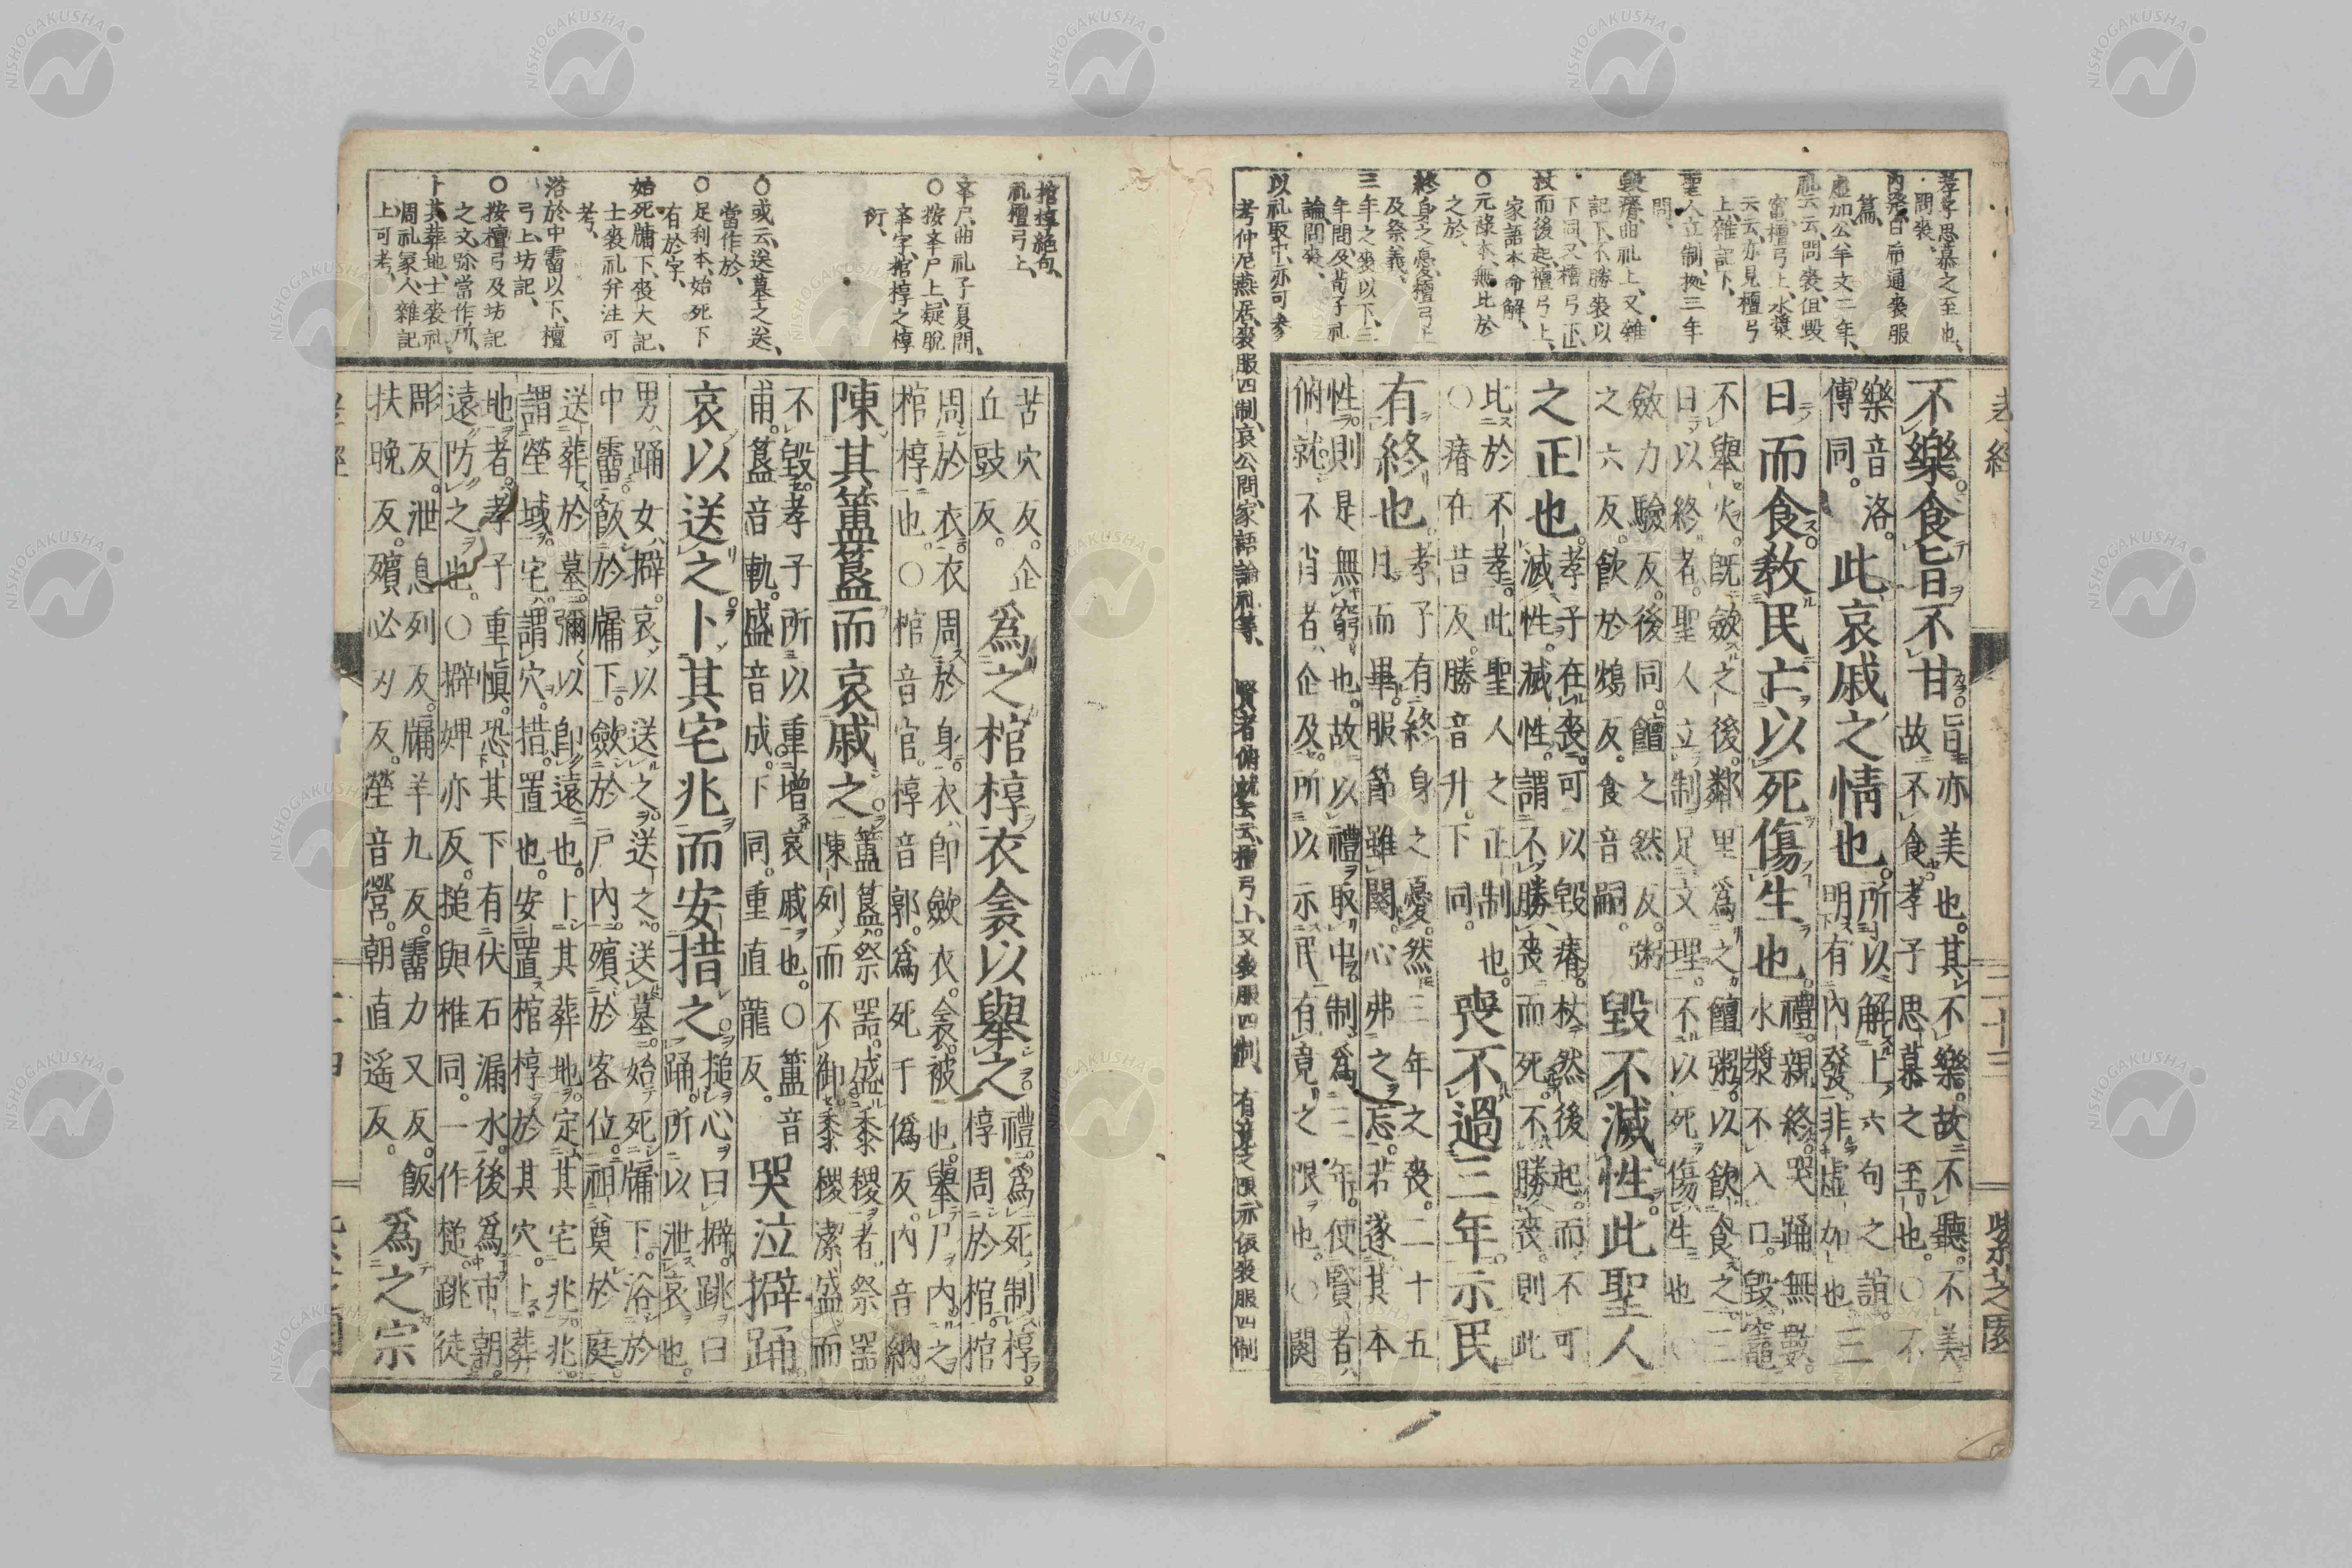 孝子思慕之至也、
問喪、
内發白虎通喪服
篇、
虛加公羊文二年、
礼云云、問喪、但毀
竈檀弓上、水漿
云云、亦見檀弓
上、雜記下、
聖人立制、三年
問、
毀瘠曲礼上、又雜
記下、不勝喪以
下同、又檀弓正、
杖而後起、檀弓上、
家語本命解、
○元祿本、無比於
之於、
終身之憂、檀弓上
及祭義、
三年之喪以下、三
年問、及荀子礼
論、問喪、
以礼取中、亦可參
考仲尼燕居、喪服四制、哀公問、家語論礼等、 賢者俯就云云、檀弓上、又喪服四制、 有竟之限、亦依喪服四制
孝經 二十三 紫芝園
不樂。食旨不甘。旨亦美也。其不樂。故不聽。不美
故不食。孝子思慕之至也。○不
樂音洛。
傳同。此哀戚之情也。所以解上六句之誼。
明有內發。非虛加也。三
日而食。敎民亡以死傷生也。禮。親終。哭踊無數。
水漿不入口。毀竈
不舉火。旣斂之後。鄰里爲之饘粥。以飮食之。三
日以終者。聖人立制足文理。不以死傷生也
斂力驗反。後同。饘之然反。粥
之六反。飮於鴆反。食音嗣。毀不滅性。此聖人
之正也。孝子在喪。可以毀瘠。杖然後起。而不可
滅性。滅性。謂不勝喪而死。不勝喪。則此
比於不孝。此聖人之正制也。
○瘠在昔反。勝音升。下同。喪不過三年。示民
有終也。孝子有終身之憂。然三年之喪。二十五
月而畢。服節雖闋。心弗之忘。若遂其本
性。則是無窮也。故以禮取中。制爲三年。使賢者
俯就。不肖者企及。所以示民有竟之限也。○闋
棺椁絕句、
礼檀弓上、
幸尸、曲礼子夏問、
○按幸尸上、疑脫
幸字、棺椁之椁
衍、
○或云、送墓之送、
當作於、
○足利本、始死下
有於字、
始死牖下、喪大記、
士喪礼幷注可
考、
浴於中霤以下、檀
弓上、坊記、
○按檀弓及坊記
之文、踪當作所、
卜其葬地、士喪礼
周礼冢人、雜記
上可考、
苦穴反。企
丘豉反。爲之棺椁衣衾以舉之。禮。爲死制椁。
椁周於棺。棺
周於衣。衣周於身。衣卽斂衣。衾被也。舉尸內之
棺椁也。○棺音官。椁音郭。爲死于僞反。內音納
陳其簠簋而哀戚之。簠簋。祭器。盛黍稷者。祭器
陳列。而不御。黍稷潔盛而
不毀。孝子所以重增哀戚也。○簠音
甫。簋音軌。盛音成。下同。重直龍反。哭泣擗踊
哀以送之。卜其宅兆而安措之。搥心曰擗。跳曰
踊。所以泄哀也。
男踊女擗。哀以送之。送之。送墓。始死牖下。浴於
中霤。飯於牖下。斂於戶內。殯於客位。祖奠於庭。
送葬於墓。彌以卽遠也。卜其葬地。定其宅兆。兆。
謂塋域。宅。謂穴。措。置也。安置棺椁於其穴。卜葬
地者。孝子重愼。恐其下有伏石漏水。後爲市朝。
遠防之也。○擗婢亦反。搥與椎同。一作槌。跳徒
彫反。泄息列反。牖羊九反。霤力又反。飯
扶晚反。殯必刃反。塋音營。朝直遥反。爲之宗